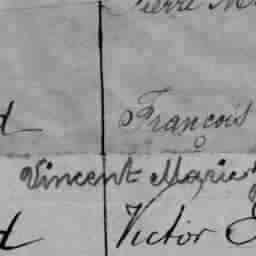 Pierre M
d François
Vincent Marie
d Victor